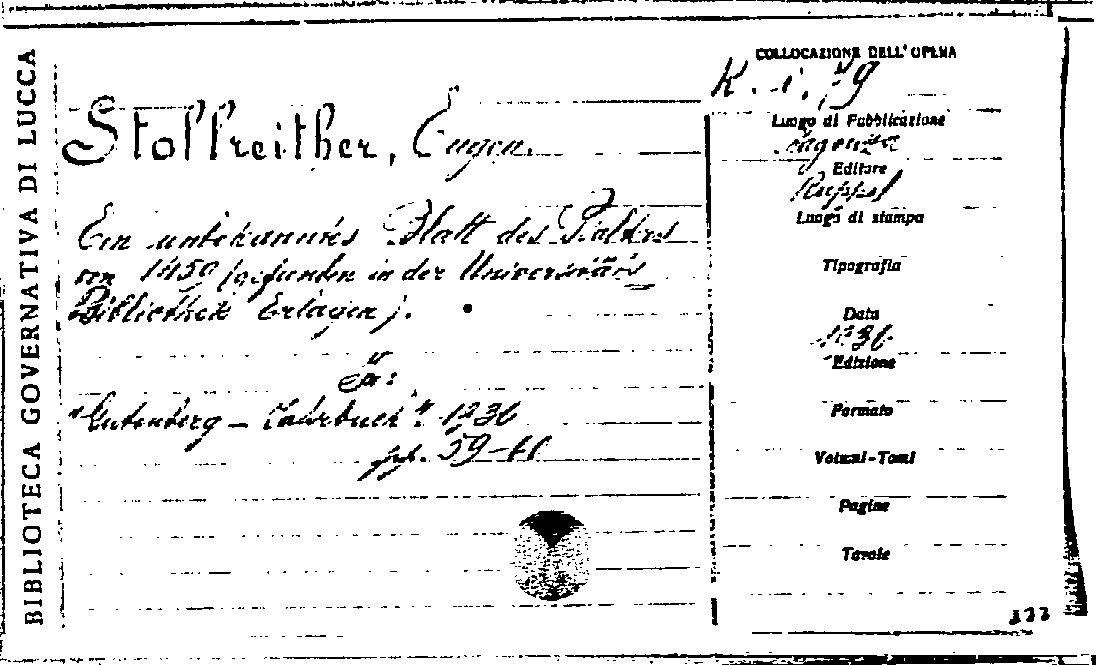 BIBLIOTECA GOVERNATIVA DI LUCCA
COLLOCAZIONE DELL'OPERA
K. i. 79
Stollreither, Eugen.
Ein unbekanntes Blatt des Psalters
von 1459 (gefunden in der Universitäts
Bibliothek Erlagen).
In:
"Gutenberg - Jahrbuch". 1936
pp. 59-61
Luogo di Pubblicazione
Editore
Ruppel
Luogo di stampa
Tipografia
Data
1936
Edizione
Formato
Volumi-Tomi
Pagine
Tavole